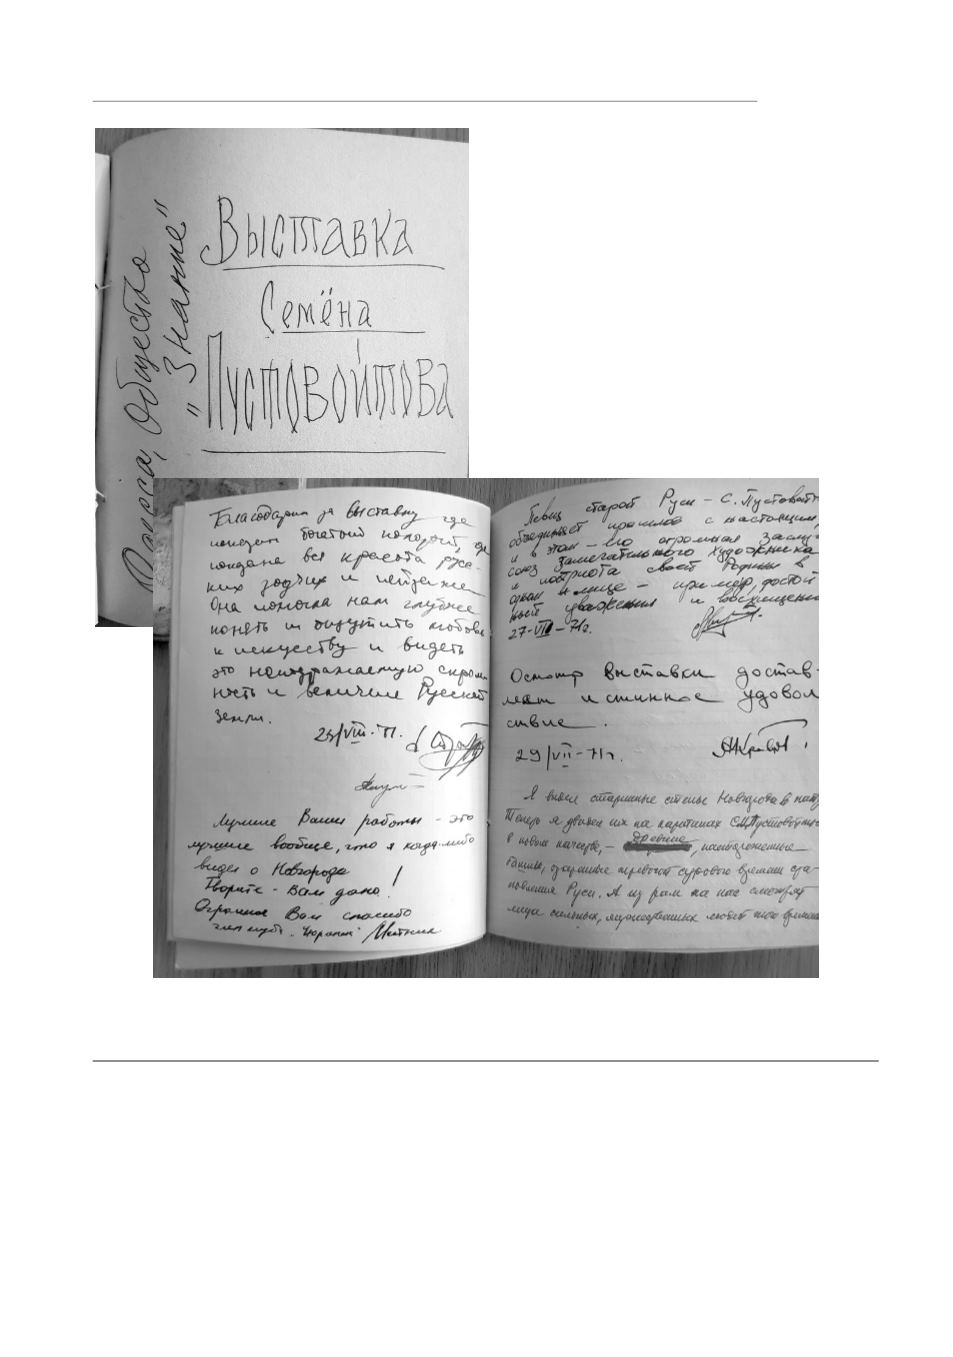 Выставка
Семёна
Пустовойтова
Общество
"Знание"
Благодарим за выставку где
показан богатый колорит, где
показана вся красота русс-
ких зодчих и пейзажей
Она помогла нам глубже
понять и ощутить любовь
к искусству и видеть
это неподражаемую скром
ность и величие Русской
Земли.
Лучшие Ваши работы - это
лучшее вообще, что я когда-либо
видел о Новгороде
Творите - Вам дано!
Огромное Вам спасибо
Певец старой Руси - С. Пустовойт
объединяет прошлое с настоящим,
и в этом - его огромная заслу-
союз замечательного художника
и патриота своей Родины в
одном лице - пример, достой
ный уважения и восхищения
27-VII-71г.
Осмотр выставки достав-
ляет истинное удоволь
ствие.
29/VII-71г.
Я видел старинные стены Новгорода в нату
Теперь я увидел их на картинах С.И. Пустовойтова
в новом качестве, - древние,
башни, озаренные тревогой сурового времени ста-
новления Руси. А из рам на нас смотрят
лица сильных,